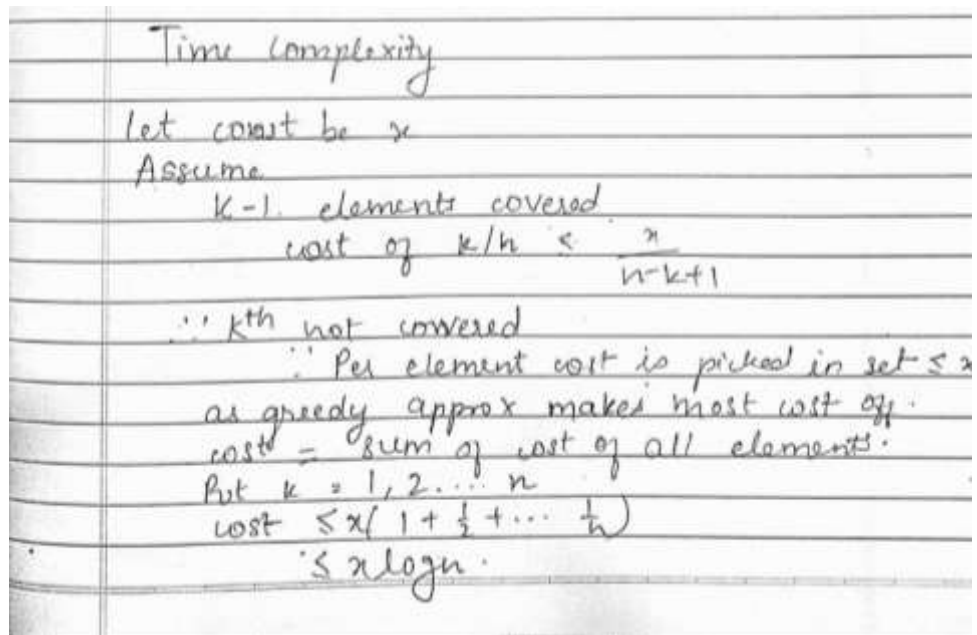 Time Complexity
let cost be x
Assume
K-1 elements covered
cost of k/n ≤ x/(n-k+1)
∵ Kth not covered
∵ Per element cost is picked in set ≤ x
as greedy approx makes most cost off.
cost = sum of cost of all elements.
Put k = 1, 2.... n
cost ≤ x(1 + 1/2 + ... 1/n)
≤ x logn.